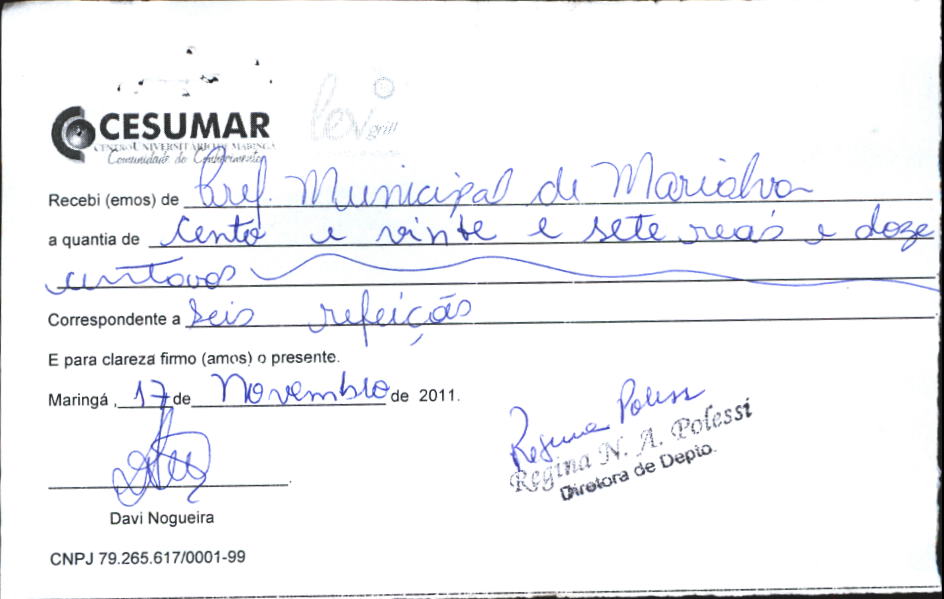 CESUMAR
CENTRO UNIVERSITÁRIO DE MARINGÁ
Comunidade do Conhecimento
lev grill
Recebi (emos) de Pref. Municipal de Marialva
a quantia de cento e vinte e sete reás e doze
centavos
Correspondente a Seis refeiçãs
E para clareza firmo (amos) o presente.
Maringá , 17 de Novembro de 2011.
Regina Polessi
Regina N. A. Polessi
Diretora de Depto.
Davi Nogueira
CNPJ 79.265.617/0001-99